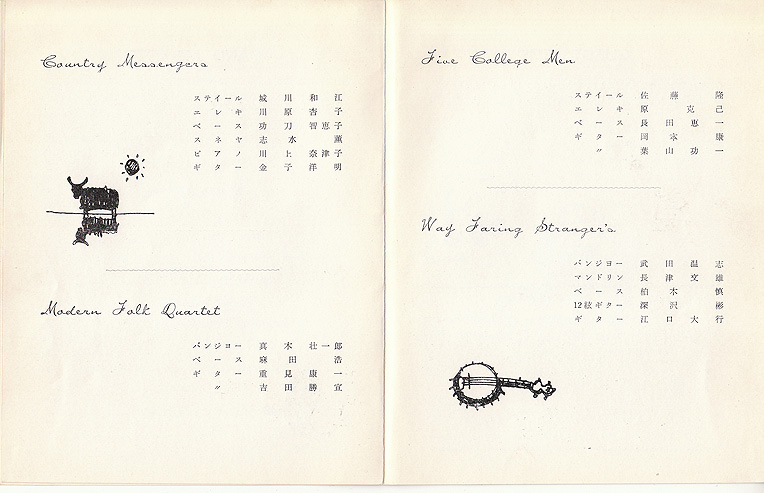 Country Messengers
スティール 城川和江
エレキ 川原杏子
ベース 功刀智恵子
スネヤ 志水薫
ピアノ 川上奈津子
ギター 金子洋明
Modern Folk Quartet
バンジョー 真木壮一郎
ベース 麻田浩
ギター 重見康一
〃 吉田勝宣
Five College Men
スティール 佐藤隆
エレキ 原克己
ベース 長田恵一
ギター 岡本康
〃 葉山功一
Way Faring Stranger's
バンジョー 武田温志
マンドリン 長津文雄
ベース 柏木慎
12絃ギター 深沢彬
ギター 江口大行